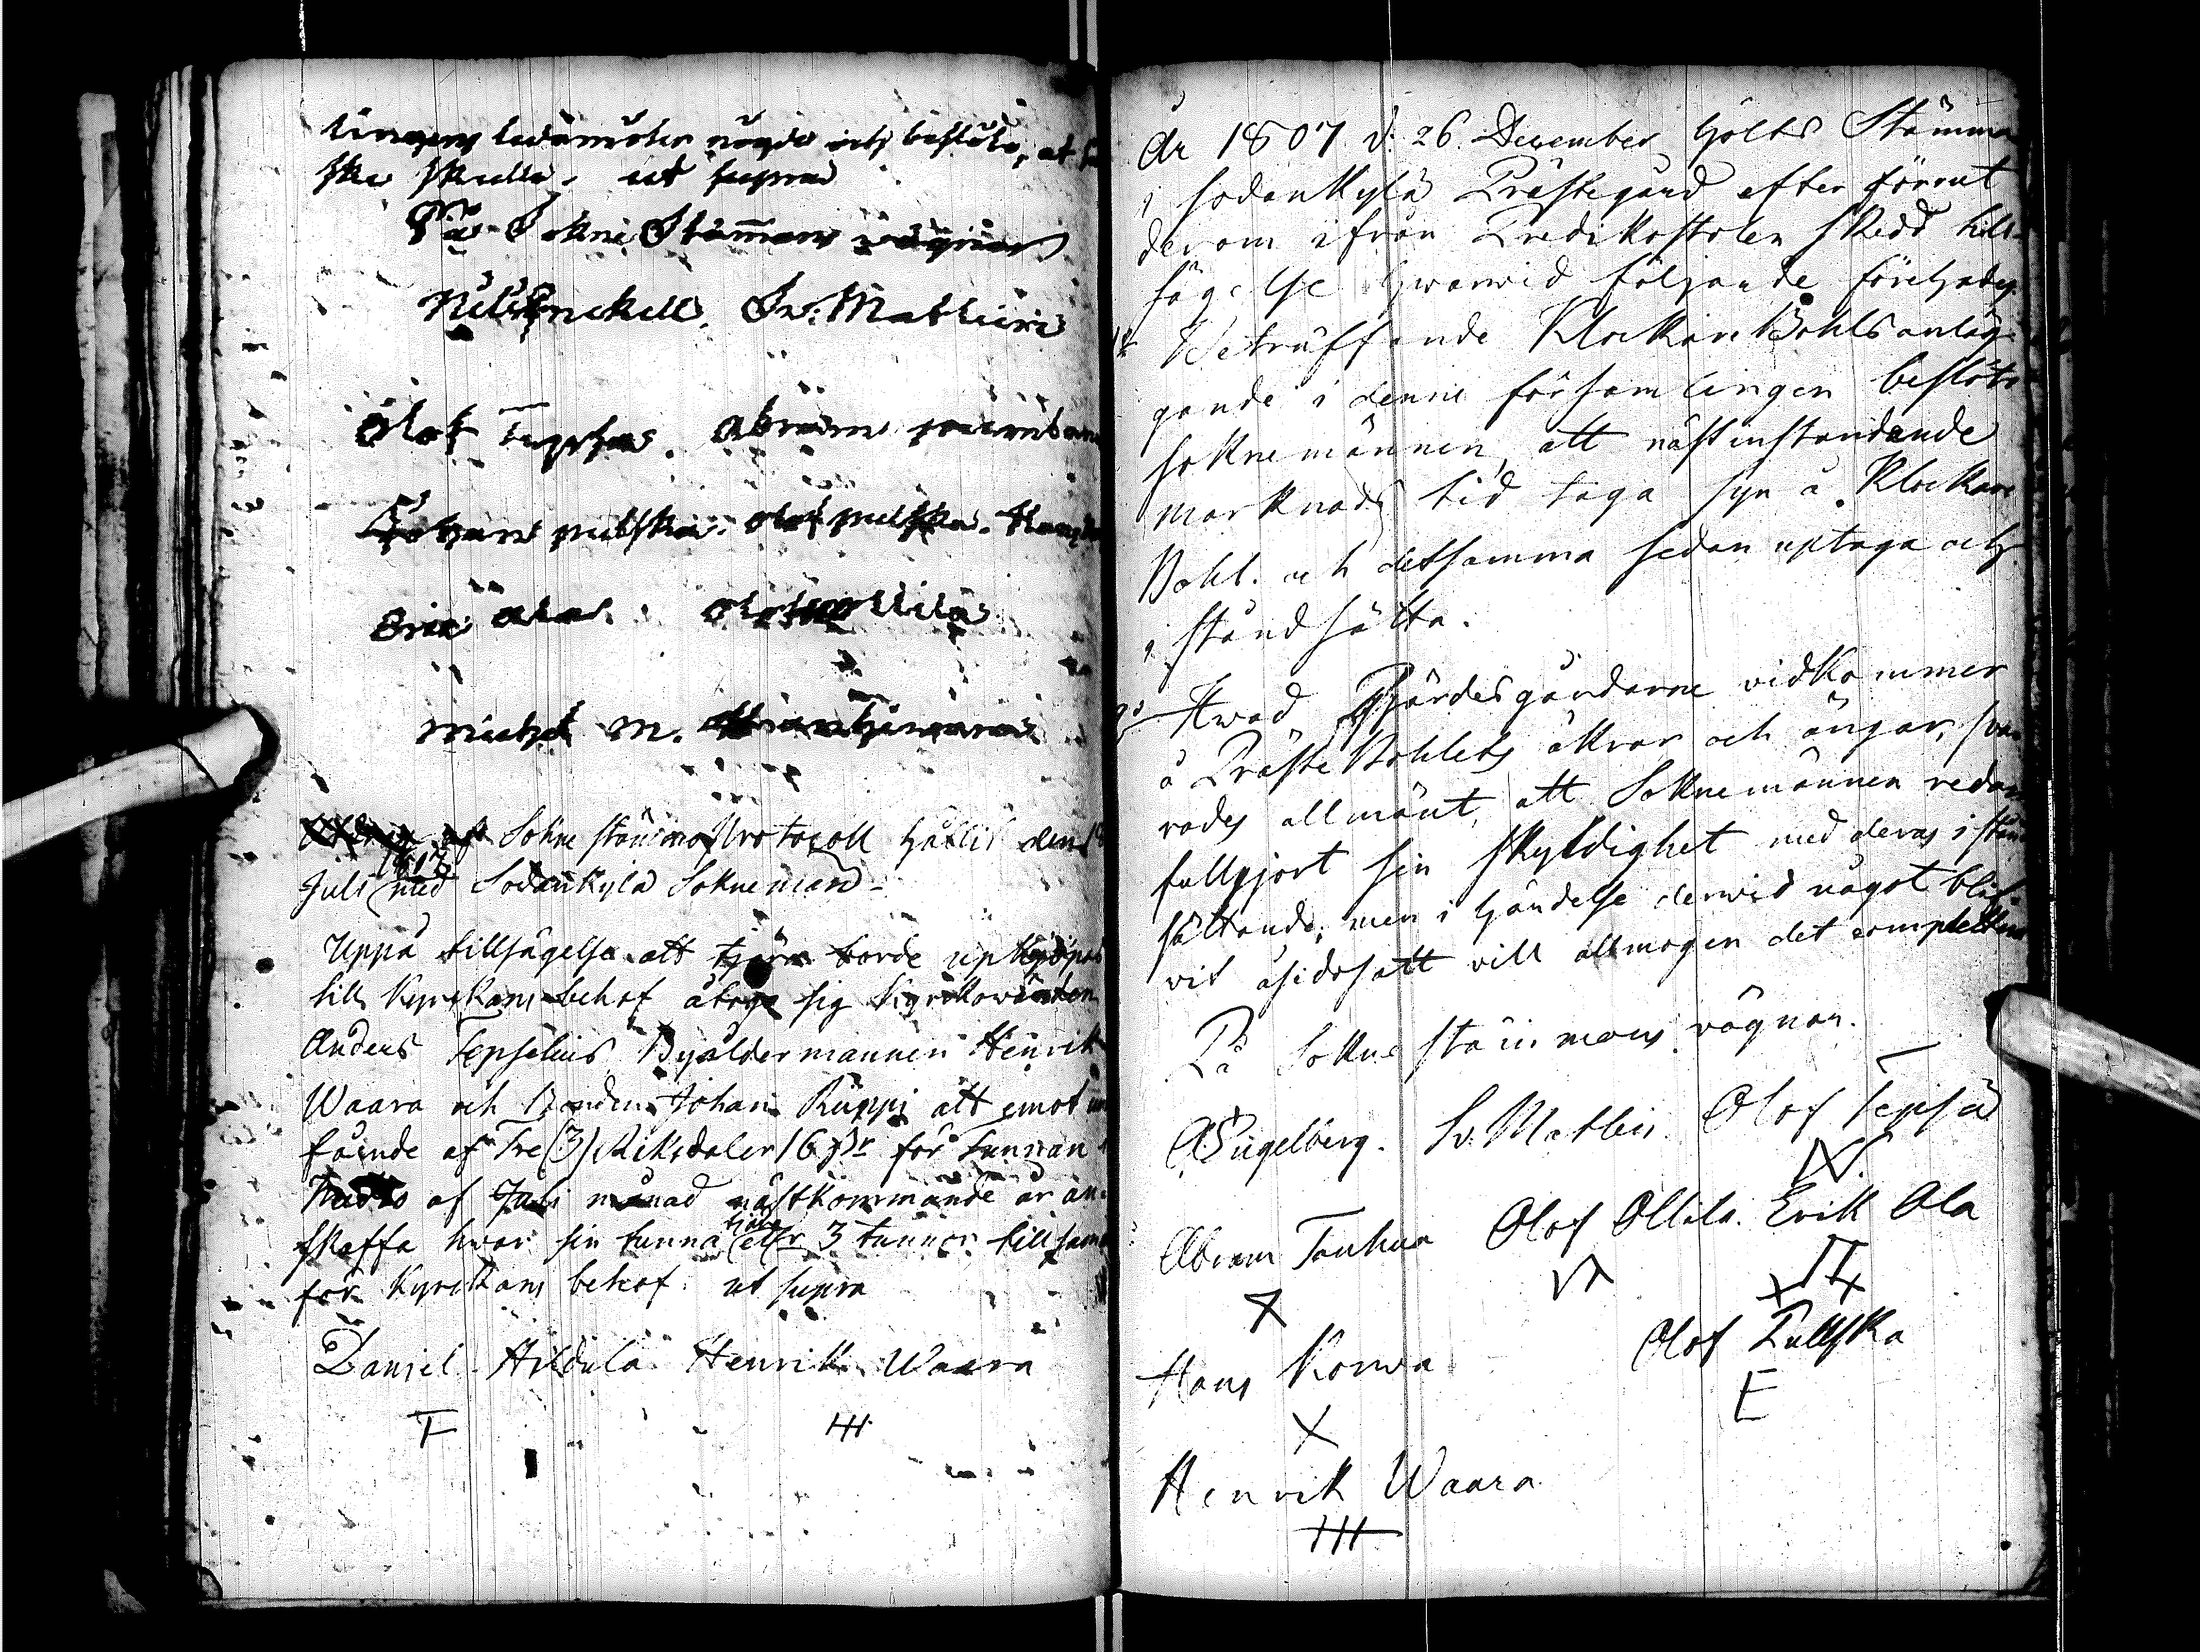 lingens ledamöter nögde och beslöto, at så
ske skulle. ut supra
På Sokne Stämmans vägnar
Nils Enckell. Sv: Mathein
Olof Tepsa. Abram
Johan pulska. Olof pulska. Hans
Eric Ala. Olof Ollila
Michel M.
Sokne stämmo Protocoll hållit den
Juli 1813 med Sodankylä Soknemän
Uppå tillsägelse att tjära borde upköpas
till Kyrckans behof åtogo sig Kyrckowärden
Anders Tepselius Byåldermannen Henrik
Waara och Bonden Johan Rüppi att emot
fående af Tre (3) Riksdaler 16 s:r för tunnan
af Juli månad nästkommande år an-
skaffa hvar sin tunna tjära eller 3 tunnor tillsam
för Kyrckans behof. ut supra
Daniel Hildula Henrik Waara
År 1807 d. 26 December hölts Stämma
i Sodankylä Prästegård efter förrut
derom ifrån Predikostolen skedd till-
sägelse hvarvid följande förehades
1:o Beträffande Klockare Bohls anläg-
gande i denne församlingen beslöto
soknemännen, att nästinstundande
marknads tid taga syn å Klockare
Bohl. och detsamma sedan uptaga och
i stånd sätta.
2:o Hwad Gjärdesgårdarne vidkommer
å Präste Bohlets åkrar och ängar, sva-
rades allmänt, att Soknemännen redan
fullgjort sin skyldighet med deras i stånd
sättande, men i händelse dervid något blif-
vit åsidosatt vill allmogen det complettera
På Sokne stämmans vägnar.
A Engelberg. Sv. Mathein Olof Tepsa
Abram Tanhua Olof Ollila. Erik Ala
Hans Korva Olof Pulska
Henrik Waara